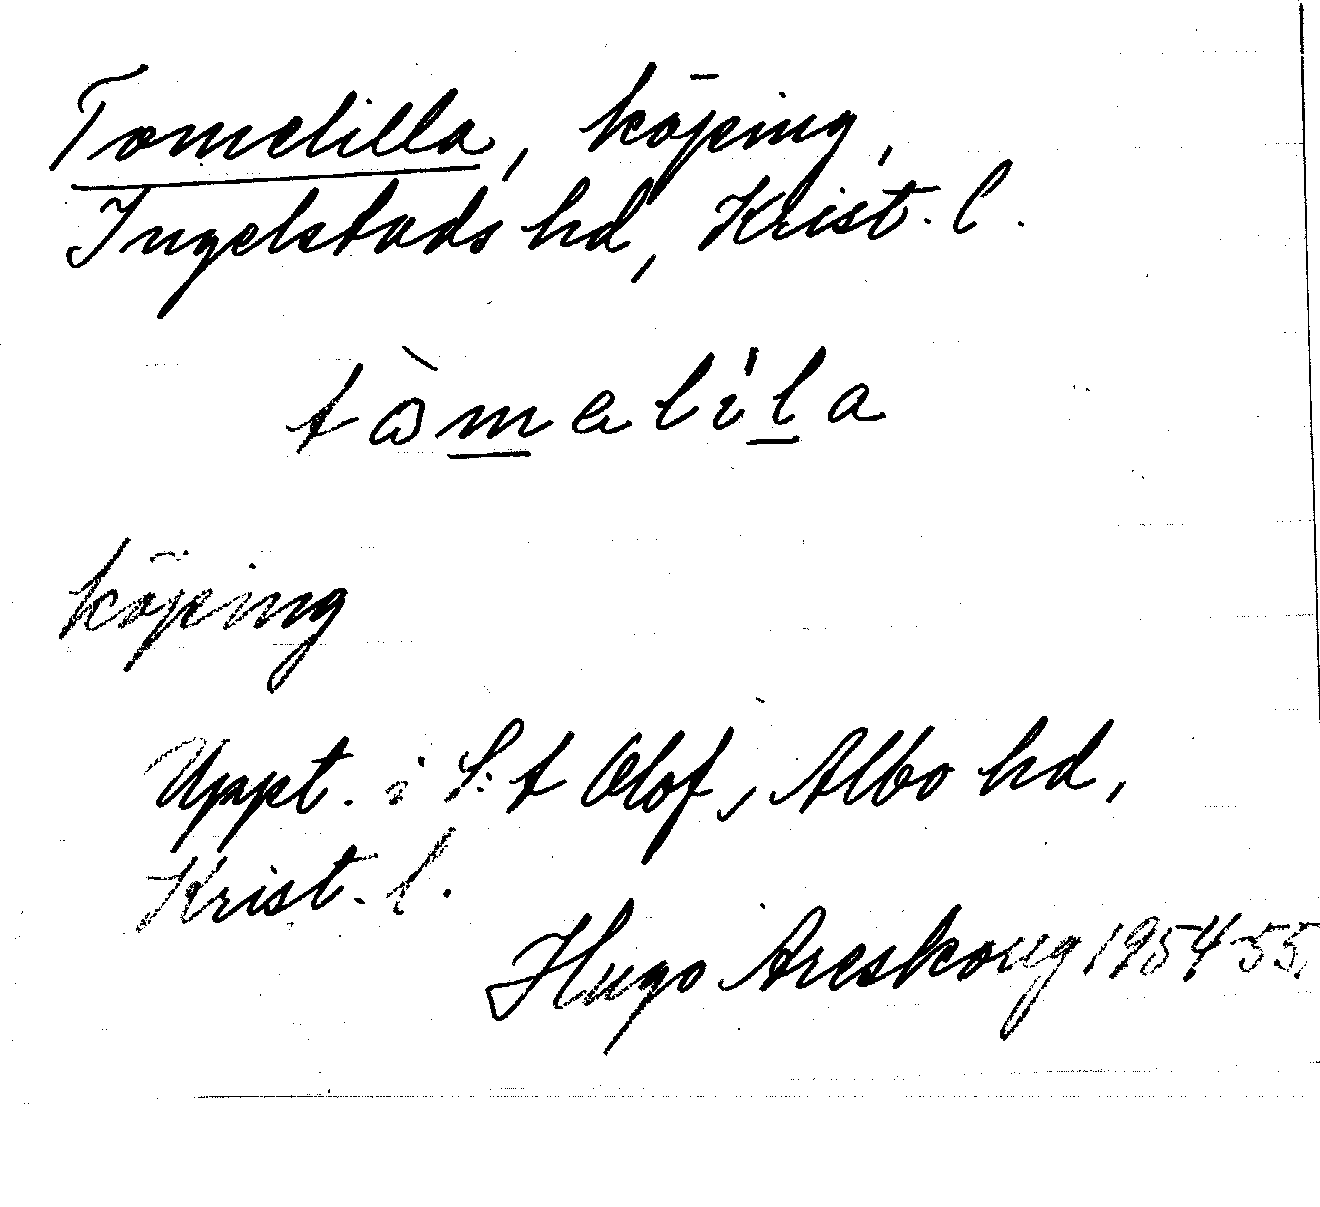 Tomelilla, köping,
Ingelstads hd, Krist. l.
köping
Uppt. i S:t Olof, Albo hd,
Krist. l.
Hugo Areskoug 1954-55.